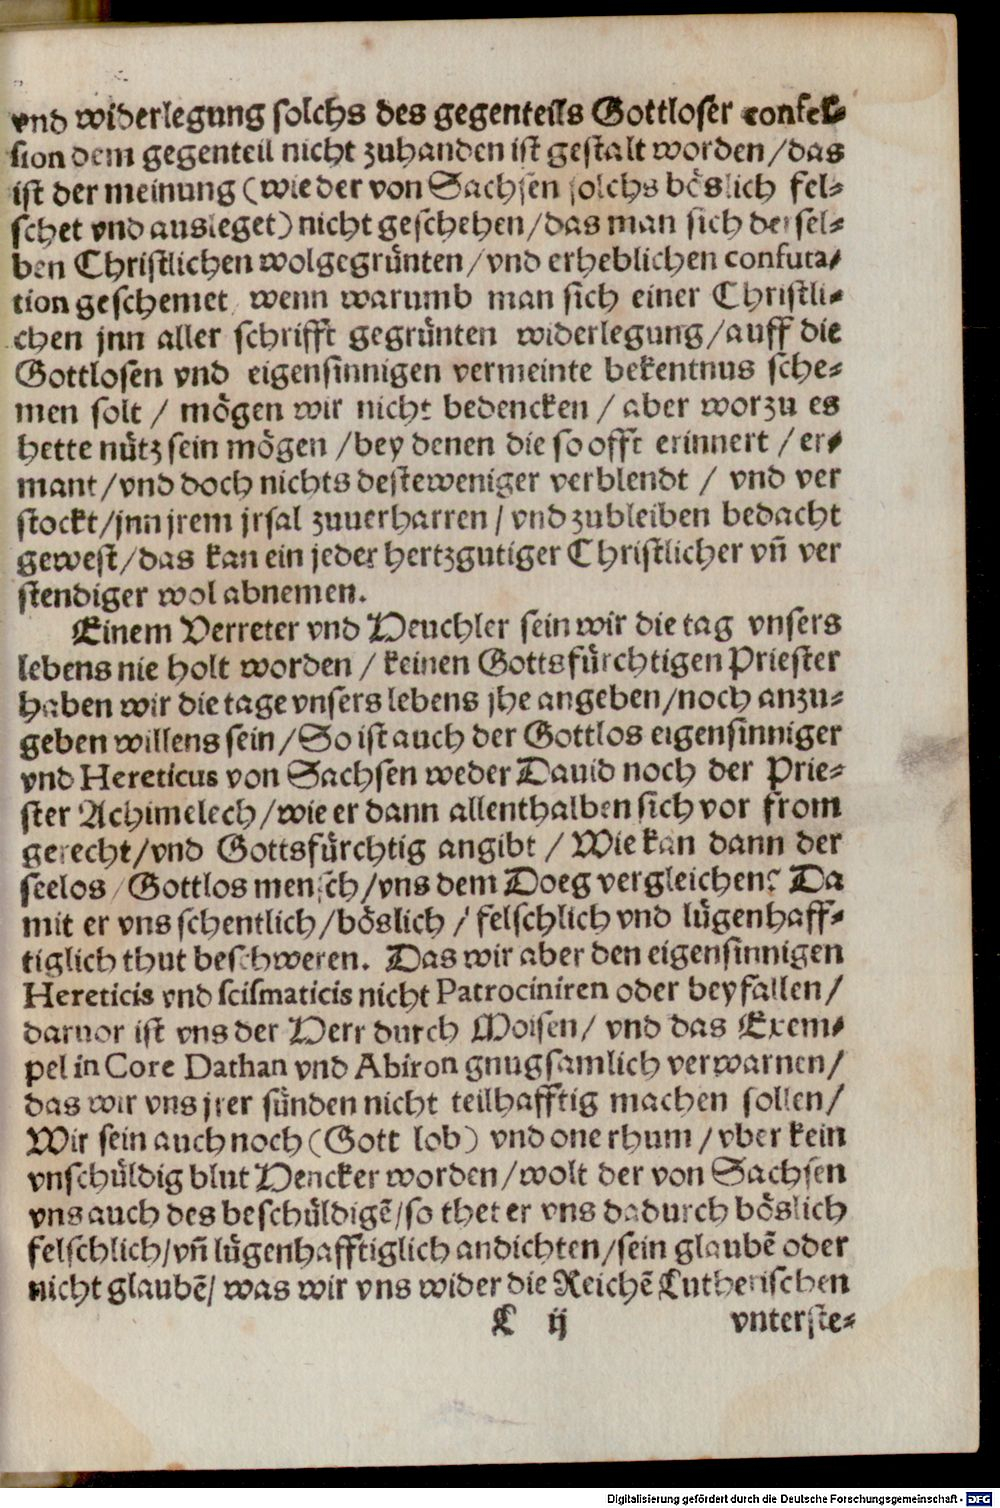 vnd widerlegung solchs des gegenteils Gottloser confes⸗
sion dem gegenteil nicht zuhanden ist gestalt worden/das
ist der meinung (wie der von Sachsen solchs böslich fel⸗
schet vnd ausleget) nicht geschehen/das man sich der sel⸗
ben Christlichen wolgegrünten/vnd erheblichen confuta⸗
tion geschemet/ wenn warumb man sich einer Christli⸗
chen jnn aller schrifft gegrünten widerlegung/auff die
Gottlosen vnd eigensinnigen vermeinte bekentnus sche⸗
men solt / mögen wir nicht bedencken / aber worzu es
hette nütz sein mögen /bey denen die so offt erinnert / er⸗
mant/vnd doch nichts desteweniger verblendt / vnd ver
stockt/jnn jrem jrsal zuuerharren / vnd zubleiben bedacht
gewest/das kan ein jeder hertzgutiger Christlicher vñ ver
stendiger wol abnemen.
Einem Verreter vnd Heuchler sein wir die tag vnsers
lebens nie holt worden / keinen Gottsfürchtigen Priester
haben wir die tage vnsers lebens jhe angeben/noch anzu⸗
geben willens sein/So ist auch der Gottlos eigensinniger
vnd Hereticus von Sachsen weder Dauid noch der Prie⸗
ster Achimelech/wie er dann allenthalben sich vor from
gerecht/vnd Gottsfürchtig angibt / Wie kan dann der
seelos/Gottlos mensch/vns dem Doeg vergleichen? Da
mit er vns schentlich/böslich / felschlich vnd lügenhaff⸗
tiglich thut beschweren. Das wir aber den eigensinnigen
Hereticis vnd scismaticis nicht Patrociniren oder beyfallen/
daruor ist vns der Herr durch Moisen/ vnd das Exem⸗
pel in Core Dathan vnd Abiron gnugsamlich verwarnen/
das wir vns jrer sünden nicht teilhafftig machen sollen/
Wir sein auch noch (Gott lob) vnd one rhum /vber kein
vnschüldig blut Hencker worden/wolt der von Sachsen
vns auch des beschüldigẽ/so thet er vns dadurch böslich
felschlich/vñ lügenhafftiglich andichten/sein glaubẽ oder
nicht glaubẽ/ was wir vns wider die Reichẽ Lutherischen
C ij vnterste⸗
Digitalisierung gefördert durch die Deutsche Forschungsgemeinschaft - DFG